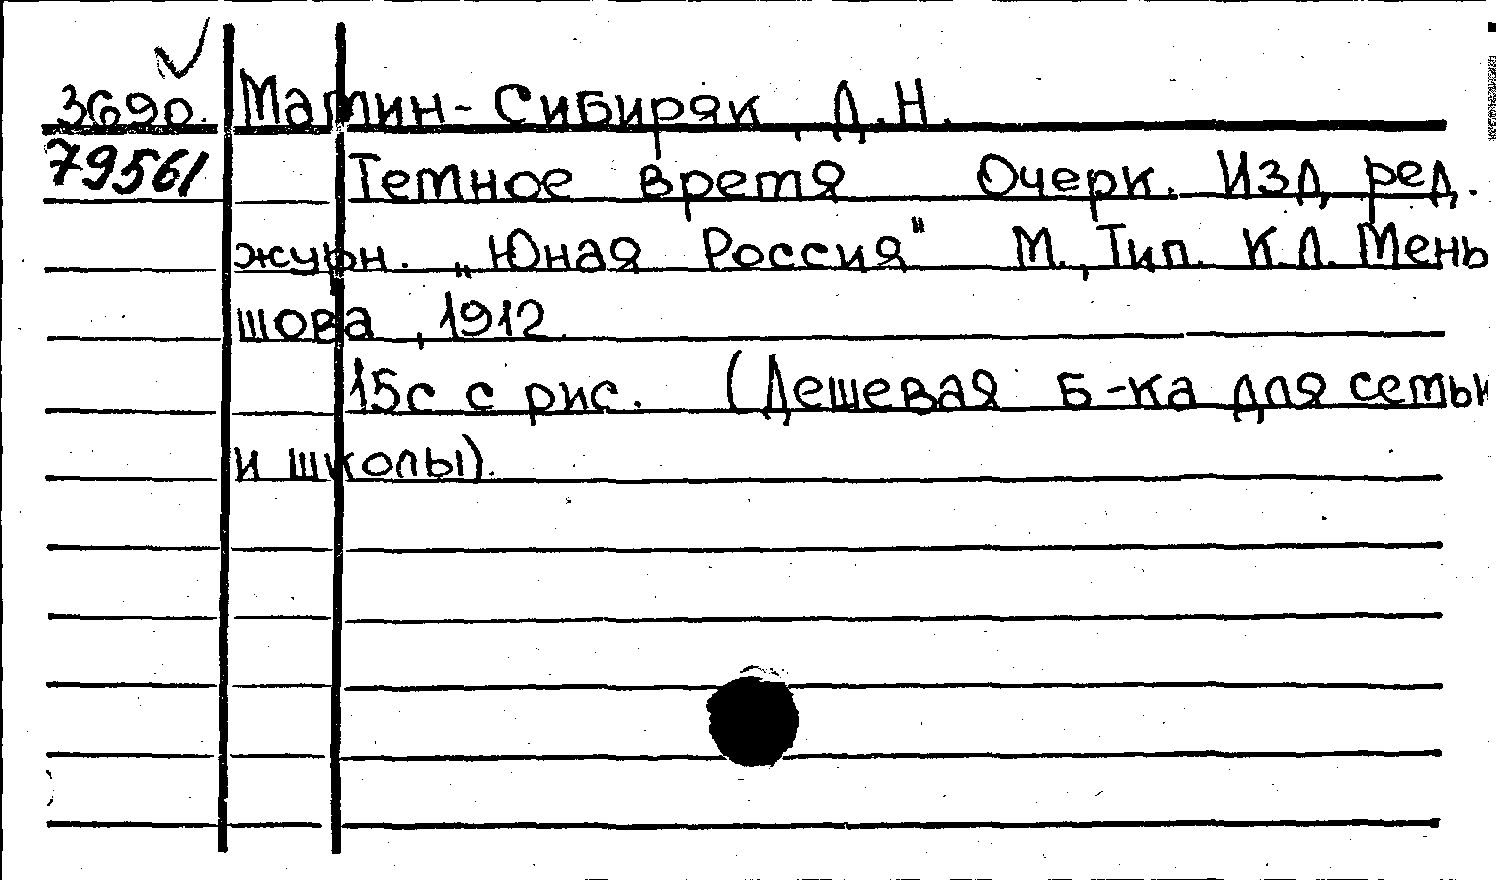 3690. Мамин-Сибиряк, Д.Н.
79561 Темное время Очерк. Изд. ред.
журн. „Юная Россия" М., Тип. К.Л. Мень
шова, 1912.
15с с рис. (Дешевая Б-ка для семьи
и школы).